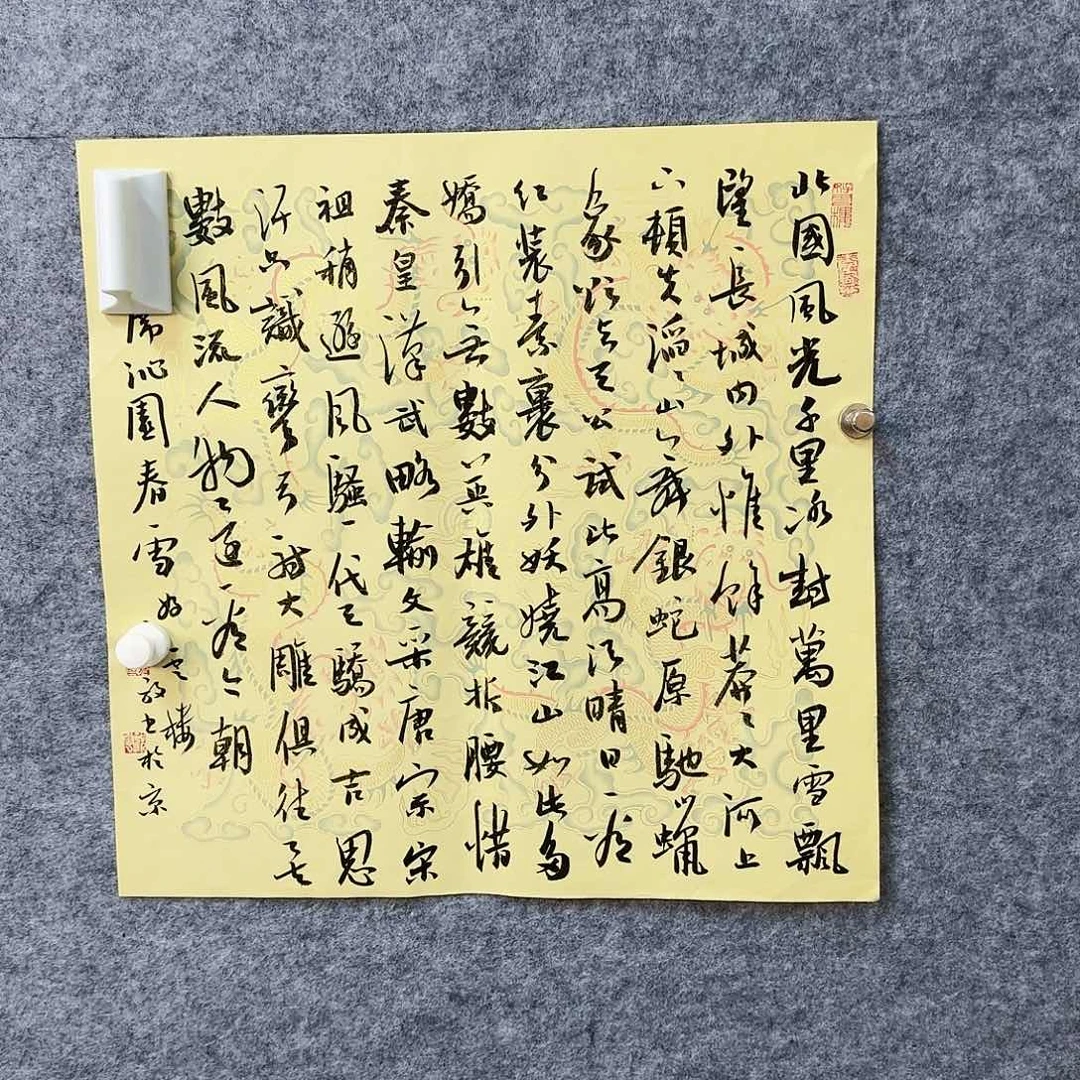 北國風光千里冰封萬里雪飄
望長城内外惟餘莽〻大河上
下頓失滔〻山舞銀蛇原馳蠟
象欲与天公試比高須晴日看
红装素裹分外妖嬈江山如此多
嬌引無數英雄競折腰惜
秦皇漢武略輸文采唐宗宋
祖稍遜風騷一代天驕成吉思
汗只識彎弓射大雕俱往矣
數風流人物還看今朝
席沁園春雪
樓
敬书於京